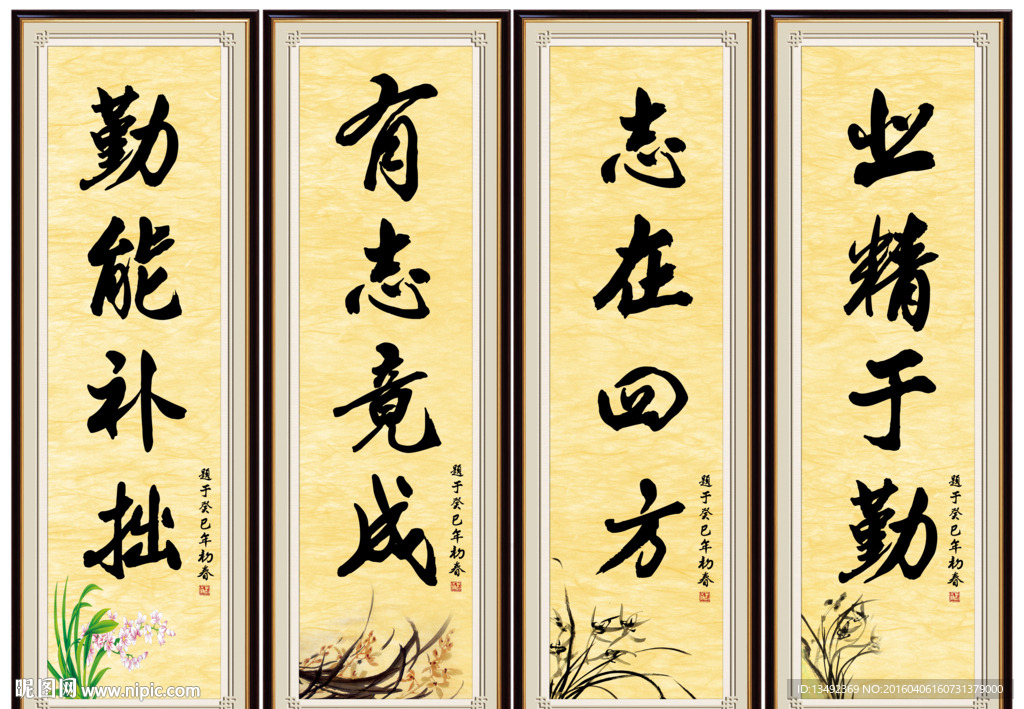 勤能补拙
题于癸巳年初春
有志竟成
题于癸巳年初春
志在四方
题于癸巳年初春
业精于勤
题于癸巳年初春
昵图网 www.nipic.com
ID:13492369 NO:20160406160731379000